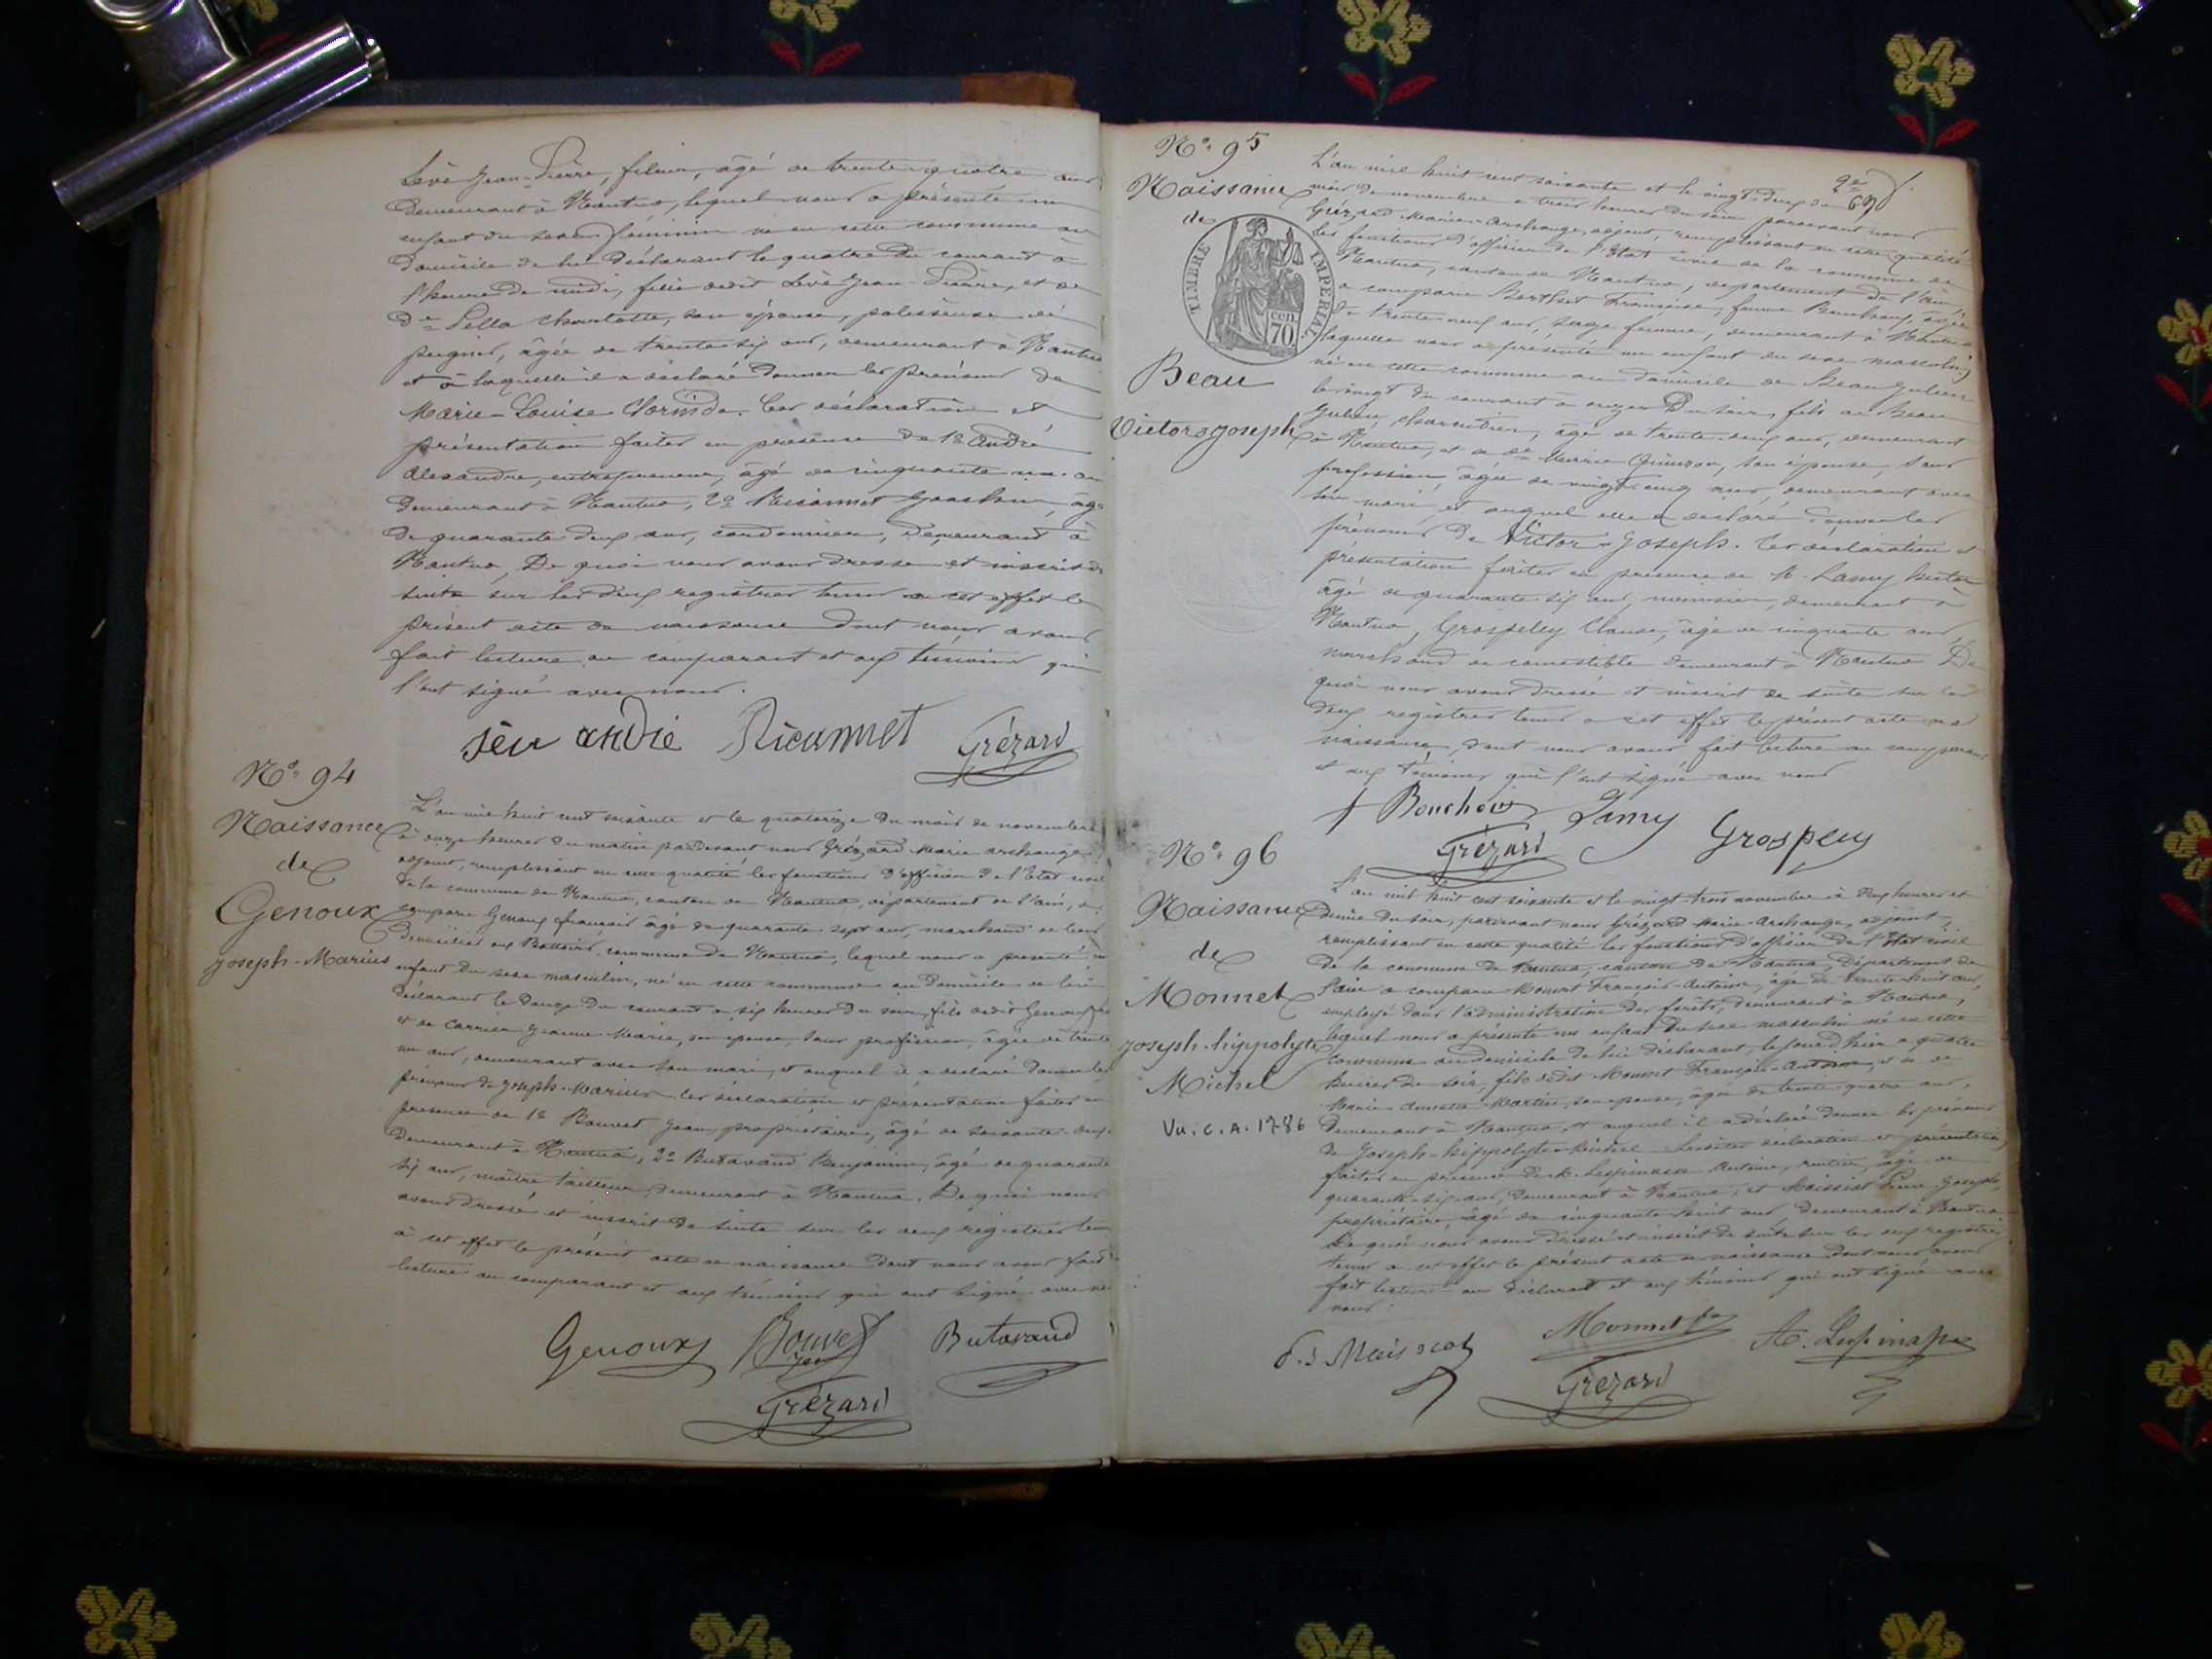 Jean-Pierre, fileur, âgé de trente-quatre ans
demeurant à Nantua, lequel nous a présenté un
enfant du sexe féminin né en cette commune au
domicile de lui déclarant le quatre du courant à
l'heure de midi, fille dudit Jean-Pierre, et de
Charlotte, son épouse,
âgée de trente-six ans, demeurant à Nantua
et à laquelle il a déclaré donner les prénoms de
Marie-Louise Clorinde. Ces déclaration et
présentation faites en présence de 1º André
Alexandre, entrepreneur, âgé de cinquante
demeurant à Nantua, 2º âgé
de quarante deux ans, cordonnier, demeurant à
Nantua, De quoi nous avons dressé et inscrit de
suite sur les deux registres tenus à cet effet le
présent acte de naissance dont nous avons
fait lecture au comparant et aux témoins qui
l'ont signé avec nous.
andré Grézard
Nº 94
Naissance
de
Genoux
Joseph-Marius
L'an mil huit cent soixante et le quatorze du mois de novembre
à onze heures du matin pardevant nous Grézard Marie archange
adjoint, remplissant en cette qualité les fonctions d'officier de l'Etat civil
de la commune de Nantua, canton de Nantua, département de l'ain, a
comparu Genoux françois âgé de quarante sept ans, marchand de
domicilié aux Battoirs, commune de Nantua, lequel nous a présenté un
enfant du sexe masculin, né en cette commune au domicile de lui
déclarant le douze du courant à six heures du soir, fils dudit Genoux
et de Carrier Jeanne-Marie, son épouse, sans profession, âgée de trente
un ans, demeurant avec son mari, et auquel il a déclaré donner les
prénoms de Joseph-Marius. Ces déclaration et présentation faites en
présence de 1º Bouvet Jean, propriétaire, âgé de soixante-deux
demeurant à Nantua, 2º Butavand Benjamin, âgé de quarante
six ans, maître tailleur, demeurant à Nantua. De quoi nous
avons dressé et inscrit de suite sur les deux registres tenus
à cet effet le présent acte de naissance dont nous avons fait
lecture au comparant et aux témoins qui ont signé avec
Genoux Bouvet Butavand
Jean
Grézard
Nº 95
Naissance
de
TIMBRE IMPERIAL
cen. 70
Beau
Victor Joseph
L'an mil huit cent soixante et le vingt-deux du
mois de novembre à trois heures du soir pardevant nous
Grézard Marie-archange, adjoint, remplissant en cette qualité
les fonctions d'officier de l'Etat civil de la commune de
Nantua, canton de Nantua, département de l'ain,
a comparu Berthet Françoise, femme âgée
de trente neuf ans, sage femme, demeurant à Nantua
laquelle nous a présenté un enfant du sexe masculin
né en cette commune au domicile de Beau Julien
le vingt du courant à onze du soir, fils de Beau
Julien, charpentier, âgé de trente-deux ans, demeurant
à Nantua, et de son épouse, sans
profession, âgée de vingt-cinq ans, demeurant avec
son mari et auquel elle a déclaré donner les
prénoms de Victor-Joseph. Ces déclaration et
présentation faites en présence de M. Lamy
âgé de quarante six ans, menuisier, demeurant à
Nantua, Grospelly Claude, âgé de cinquante ans
marchand de comestible demeurant à Nantua De
quoi nous avons dressé et inscrit de suite sur les
deux registres tenus à cet effet le présent acte de
naissance, dont nous avons fait lecture au comparant
et aux témoins qui l'ont signé avec nous
Lamy
Grézard
Nº 96
Naissance
de
Monnet
Joseph-hippolyte
Michel
Vu. C. A. 1786
L'an mil huit cent soixante et le vingt-trois novembre à deux heures et
demie du soir, pardevant nous Grézard Marie-Archange, adjoint,
remplissant en cette qualité les fonctions d'officier de l'Etat civil
de la commune de Nantua, canton de Nantua, Département de
l'ain a comparu Monnet François-Antoine, âgé de trente-huit ans,
employé dans l'administration des forêts, demeurant à Nantua,
lequel nous a présenté un enfant du sexe masculin né en cette
commune au domicile de lui déclarant, le jour d'hier à quatre
heures du soir, fils dudit Monnet François-Antoine, et de
Marie Martin, son épouse, âgée de trente-quatre ans,
demeurant à Nantua, et auquel il a déclaré donner les prénoms
de Joseph-hippolyte-Michel. Lesdites déclaration et présentation
faites en présence de M. Lespinasse Antoine, rentier, âgé de
quarante-six ans, demeurant à Nantua, et Maissiat Joseph,
propriétaire, âgé de cinquante-huit ans demeurant à Nantua
De quoi nous avons dressé et inscrit de suite sur les deux registres
tenus à cet effet le présent acte de naissance dont nous avons
fait lecture au déclarant et aux témoins qui ont signé avec
nous.
Monnet A. Lespinasse
Grézard